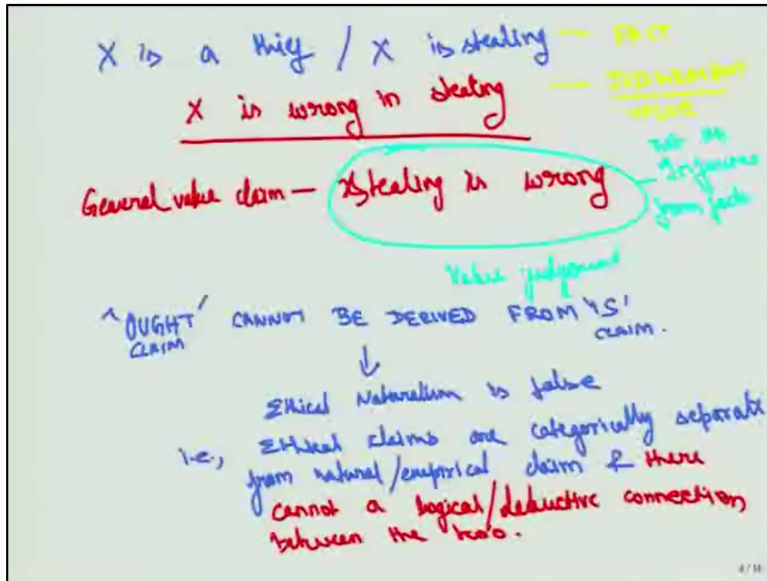 X is a thief / X is stealing — FACT
X is wrong in stealing — JUDGEMENT
VALUE
General value claim — Stealing is wrong — not an
Inference
from facts
Value judgement
'OUGHT' CANNOT BE DERIVED FROM 'IS'
CLAIM CLAIM.
↓
Ethical Naturalism is false
i.e., Ethical claims are categorically separate
from natural/empirical claim & there
cannot a logical/deductive connection
between the two.